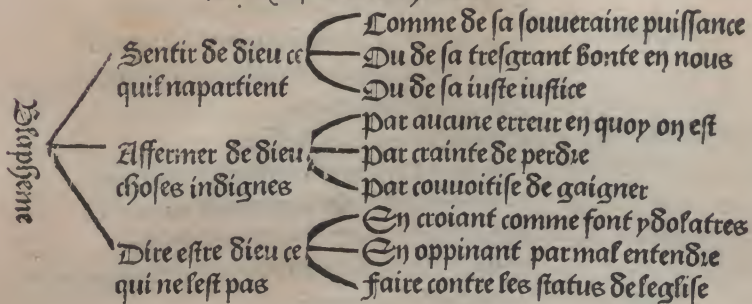 Blapheme
Sentir de dieu ce
quil napartient
Comme de sa souueraine puissance
Ou de sa tresgrant bonte en nous
Ou de sa iuste iustice
Affermer de dieu
choses indignes
Par aucune erreur en quoy on est
Par crainte de perdre
Par couuoitise de gaigner
Dire estre dieu ce
qui ne lest pas
En croiant comme font ydolatres
En oppinant par mal entendre
Faire contre les status de leglise